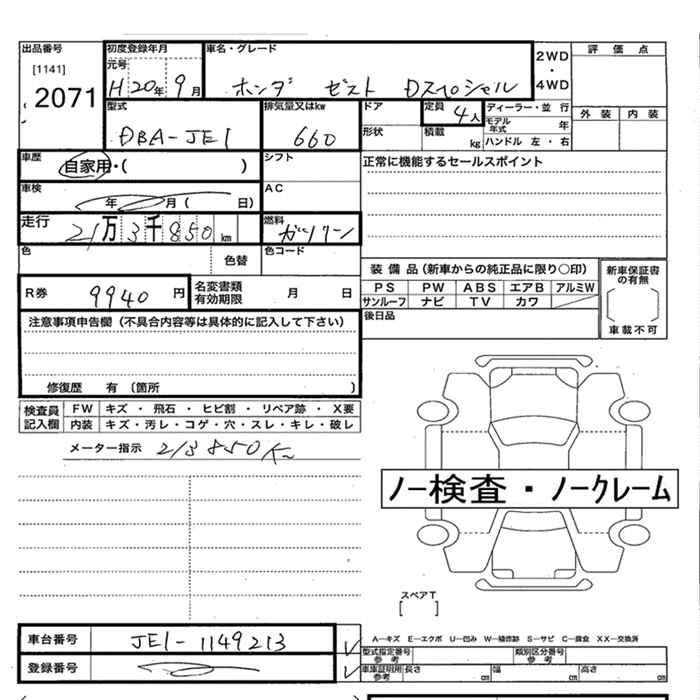 出品番号 初度登録年月 車名・グレード 2WD・4WD 評価点
[1141] 元号
2071 H20年 9月 ホンダ ゼスト Dスペシャル
型式 排気量又はkw ドア 定員 4人 ディーラー・並行 外装 内装
DBA-JE1 660 形状 積載 kg モデル年式 年
ハンドル 左・右
車歴 自家用・( ) シフト 正常に機能するセールスポイント
車検 年 月( 日) AC
走行 21万3千850km 燃料 ガソリン
色 色替 色コード
装備品(新車からの純正品に限り○印) 新車保証書の有無
R券 9940円 名変書類有効期限 月 日 PS PW ABS エアB アルミW
サンルーフ ナビ TV カワ
車載不可
注意事項申告欄(不具合内容等は具体的に記入して下さい) 後日品
修復歴 有 (箇所 )
検査員記入欄 FW キズ ・ 飛石 ・ ヒビ割 ・ リペア跡 ・ X要
内装 キズ・汚レ・コゲ・穴・スレ・キレ・破レ
メーター指示 213850Km
ノー検査・ノークレーム
スペアT
[ ]
車台番号 JE1-1149213 A―キズ E―エクボ U―凹み W―補修跡 S―サビ C―腐食 XX―交換済
型式指定番号参考 類別区分番号参考
登録番号 車庫証明用参考 長さ cm 幅 cm 高さ cm